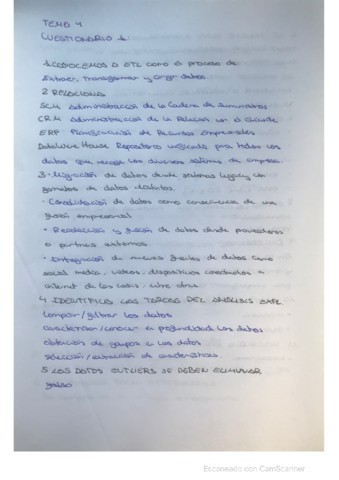 TEMA 4
CUESTIONARIO 1:
1. CONOCEMOS A ETL como el proceso de
Extraer, transformar y cargar datos.
2 RELACIONA
SCM Administración de la Cadena de Suministros
CRM administración de la Relación con el cliente
ERP Planificación de Recursos Empresariales
DataWare House Repositorio unificado para todos los
datos que recoge los diversos sistemas de empresa.
3. Migración de datos desde sistemas legacy con
formatos de datos distintos
· Consolidación de datos como consecuencia de una
fusión empresarial
· Recolección y fusión de datos desde proveedores
o partners externos.
· Integración de nuevas fuentes de datos como
social media, videos, dispositivos conectados a
internet de las cosas, entre otros.
4 IDENTIFICA LAS TAREAS DEL ANÁLISIS EXPL.
Limpiar/filtrar los datos
caracterizar/conocer en profundidad los datos
obtención de grupos en los datos
selección/extracción de características.
5 LOS DATOS OUTLIERS SE DEBEN ELIMINAR
falso
Escaneado con CamScanner